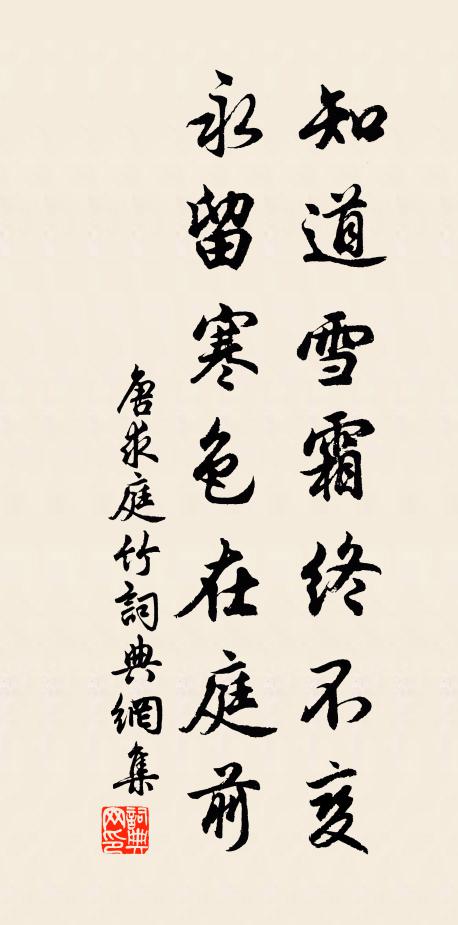 知道雪霜终不变
永留寒色在庭前
唐求庭竹詞典網集
詞典网印